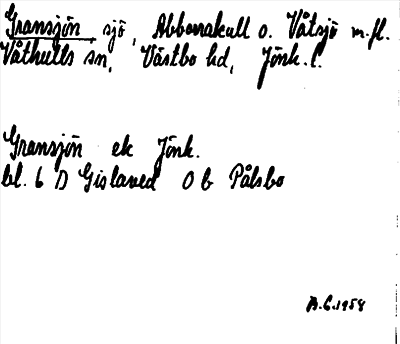 Gransjön sjö, Abborrakull o. Våtsjö m.fl.
Våthults sn, Västbo hd, Jönk. l.
Gransjön ek Jönk.
bl. 6 D Gislaved 0 b Pålsbo
A.C. 1958